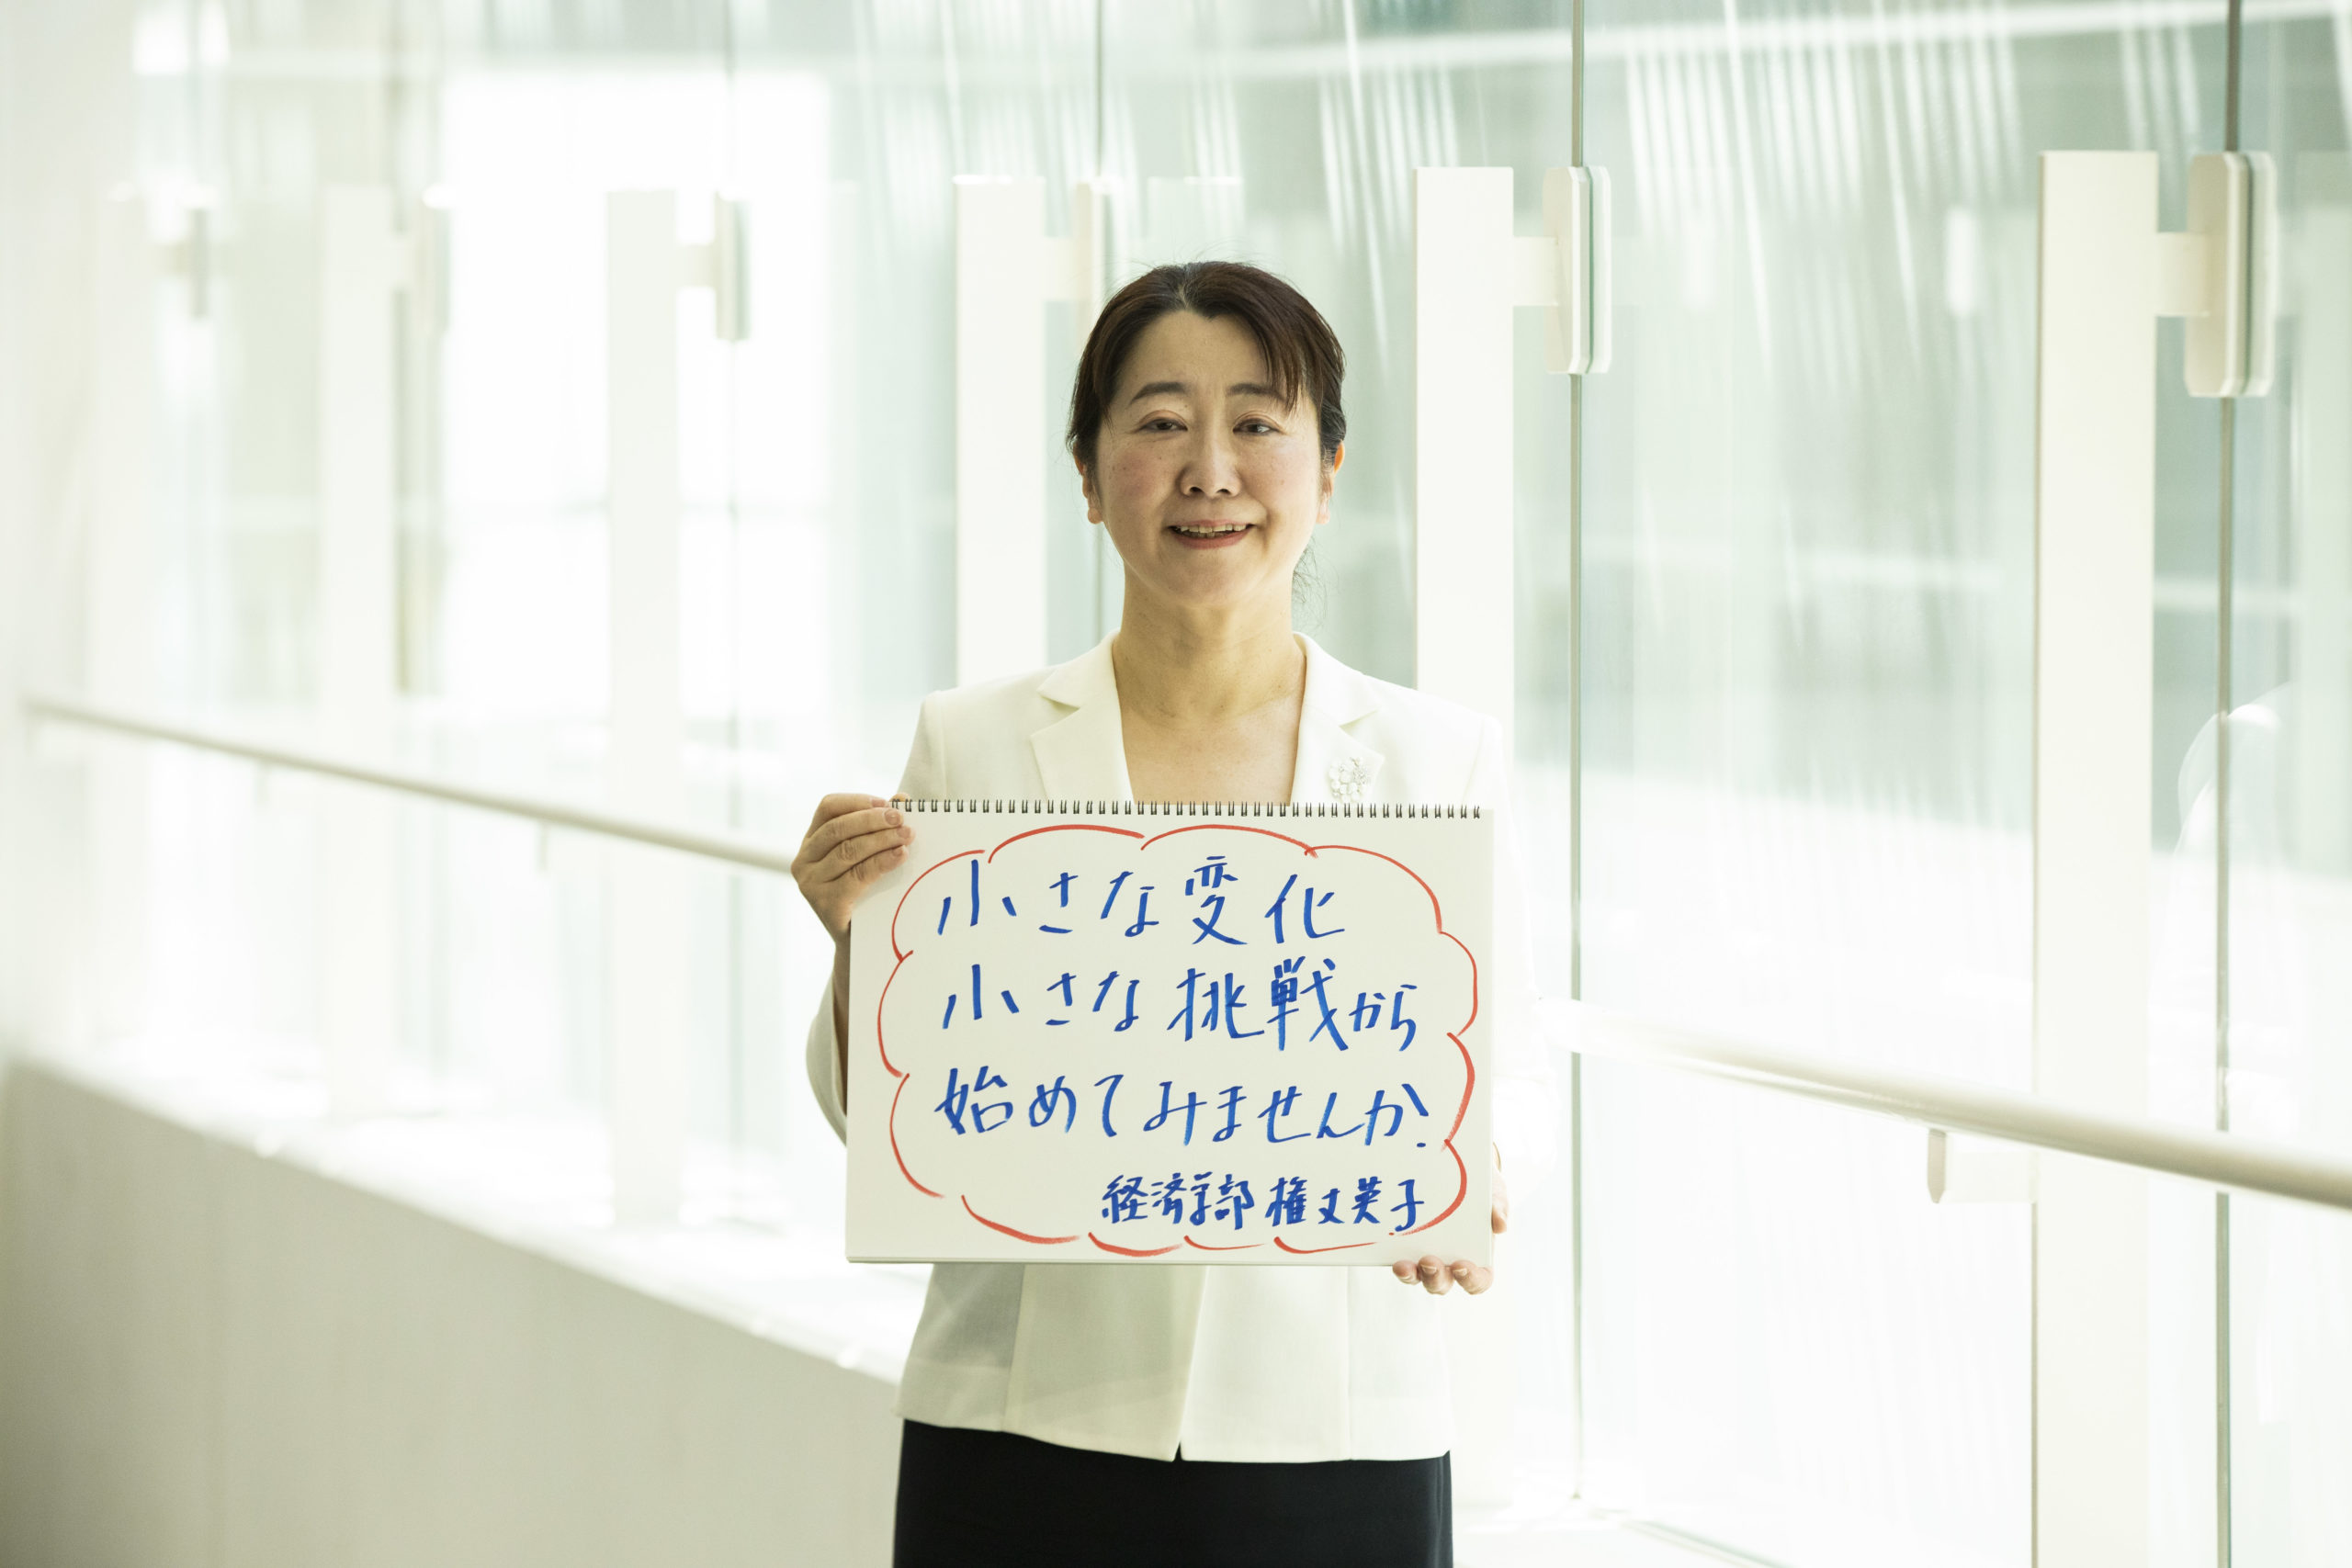 小さな変化
小さな挑戦から
始めてみませんか?
経済学部 権丈英子